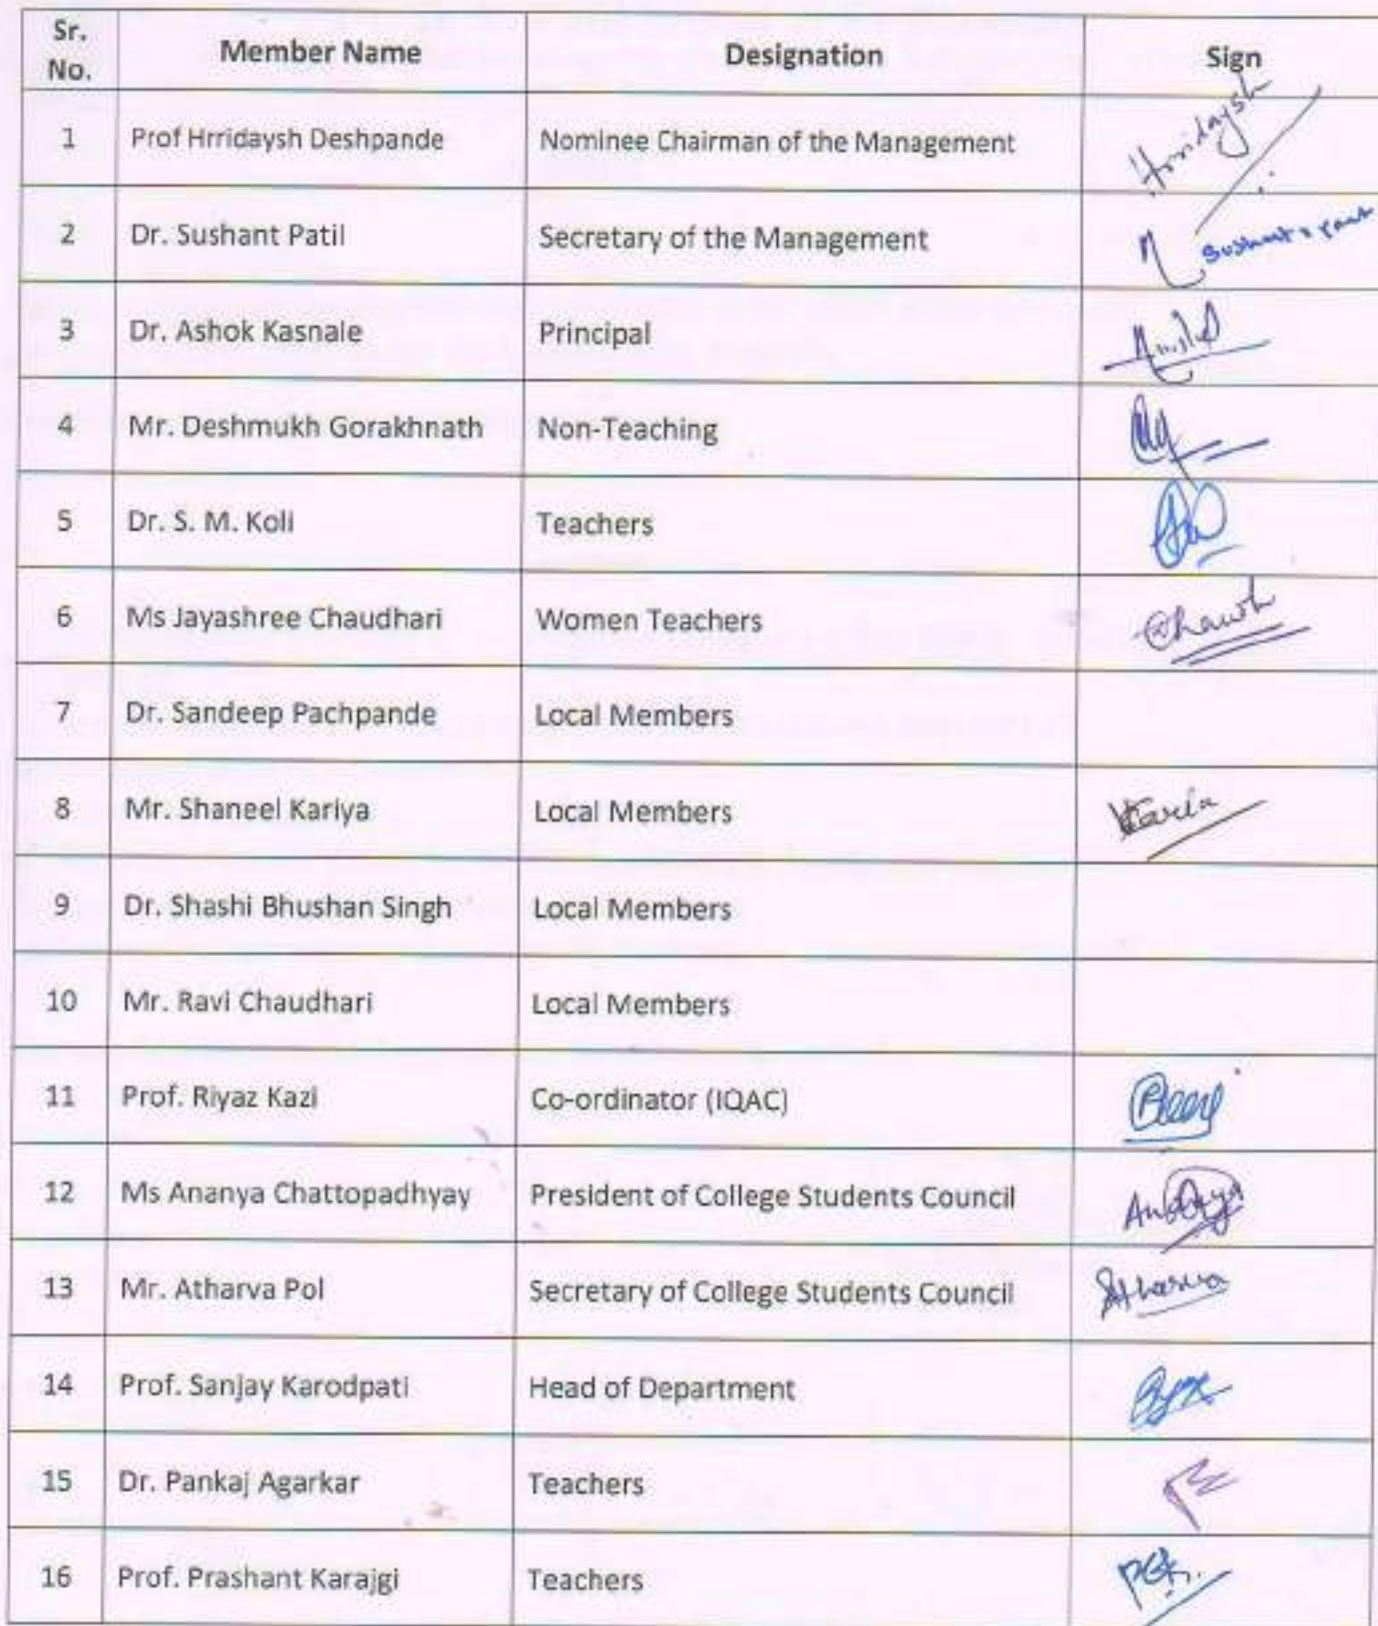 Sr. No. Member Name Designation Sign
1 Prof Hrridaysh Deshpande Nominee Chairman of the Management Hrridaysh
2 Dr. Sushant Patil Secretary of the Management
3 Dr. Ashok Kasnale Principal
4 Mr. Deshmukh Gorakhnath Non-Teaching
5 Dr. S. M. Koli Teachers
6 Ms Jayashree Chaudhari Women Teachers
7 Dr. Sandeep Pachpande Local Members
8 Mr. Shaneel Kariya Local Members
9 Dr. Shashi Bhushan Singh Local Members
10 Mr. Ravi Chaudhari Local Members
11 Prof. Riyaz Kazi Co-ordinator (IQAC)
12 Ms Ananya Chattopadhyay President of College Students Council
13 Mr. Atharva Pol Secretary of College Students Council Atharva
14 Prof. Sanjay Karodpati Head of Department
15 Dr. Pankaj Agarkar Teachers
16 Prof. Prashant Karajgi Teachers